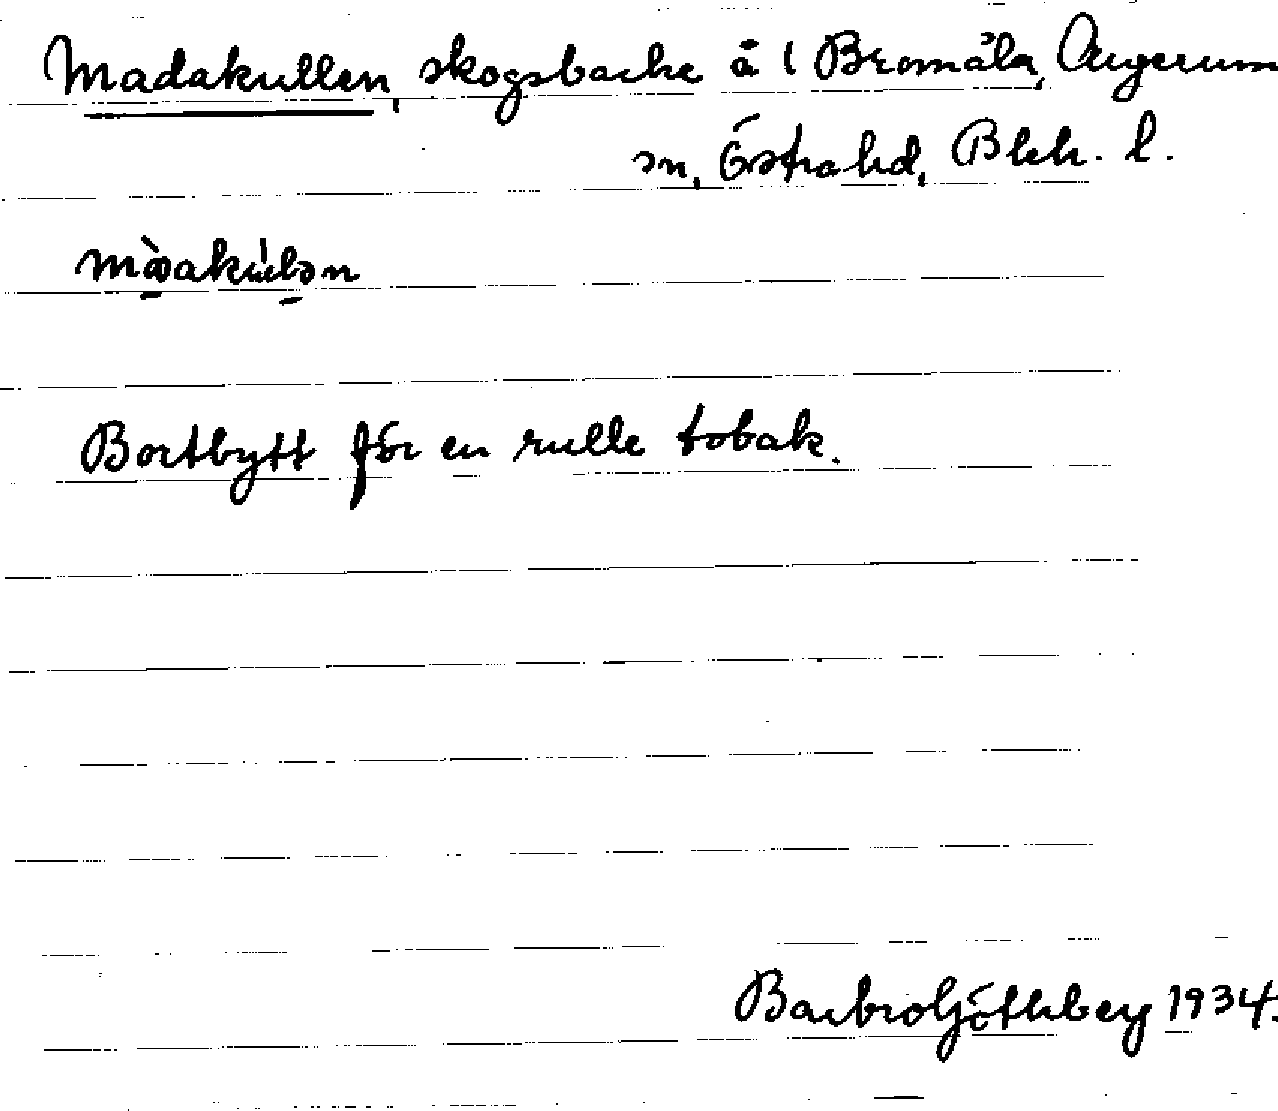 Madakullen, skogsbacke å 1 Bromåla, Augerum
sn, Östra hd, Blek. l.
Bortbytt för en rulle tobak.
Barbro Götheberg 1934.